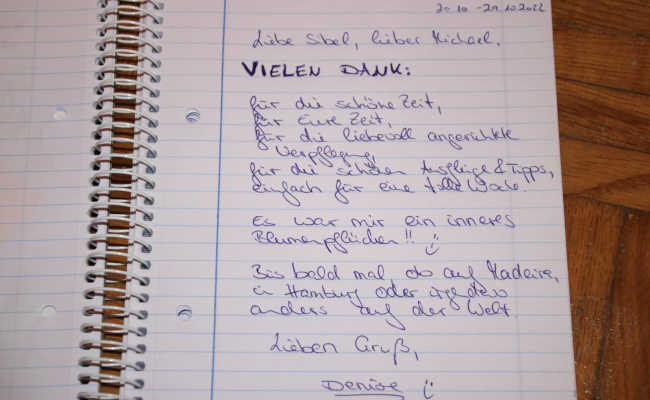 20.10.-29.10.2022
Liebe Sibel, lieber Michael,
VIELEN DANK:
für die schöne Zeit,
für Eure Zeit,
für die liebevoll angerichtete
Verpflegung,
für die schönen Ausflüge & Tipps,
einfach für eine tolle Woche.
Es war mir ein inneres
Blumenpflücken!! :)
Bis bald mal, ob auf Madeira,
in Hamburg oder irgendwo
anders auf der Welt.
Lieben Gruß,
Denise :)